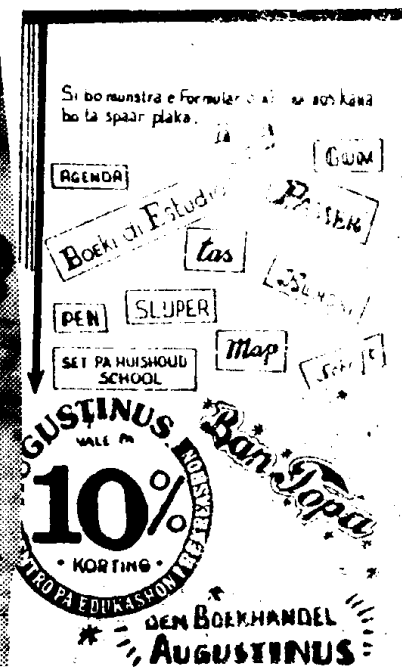 Si bo munstra e Formular na nos kaha
bo ta spaar plaka.
AGENDA
GUM
PASSER
Boeki di Estudio
tas
PEN
SLIJPER
Map
SET PA HUISHOUD
SCHOOL
AUGUSTINUS
VALE PA
10%
KORTING
CENTRO PA EDUKASHON
Ban Topa
DEN BOEKHANDEL
AUGUSTINUS